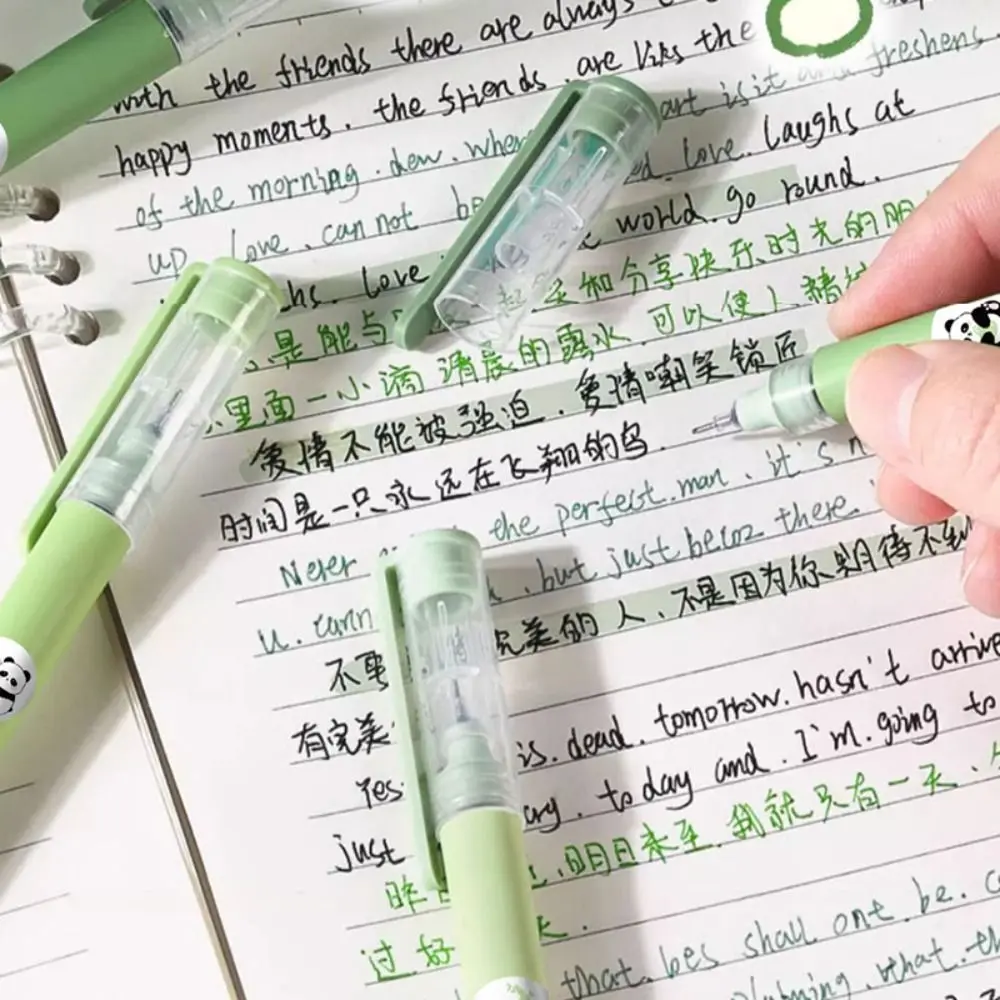 with the friends there are always
happy moments. the friends are liks the
of the morning. dew. art is it and freshens.
up love. can not love. Laughs at
love world. go round.
是能与 和分享快乐时光的朋
里面一小滴清晨的露水. 可以使人精
爱情不能被强迫. 爱情嘲笑锁匠
时间是一只永远在飞翔的鸟.
Never the perfect. man. it's
u. cann but just becoz there.
不要 完美的人、不是因为你期待不到
有完美
Yes is. dead. tomorrow. hasn't arrive
just to day and. I'm. going to
昨 明日未至. 我就只有一天.
过好 天.
that. bes shall ont. be.
what. th